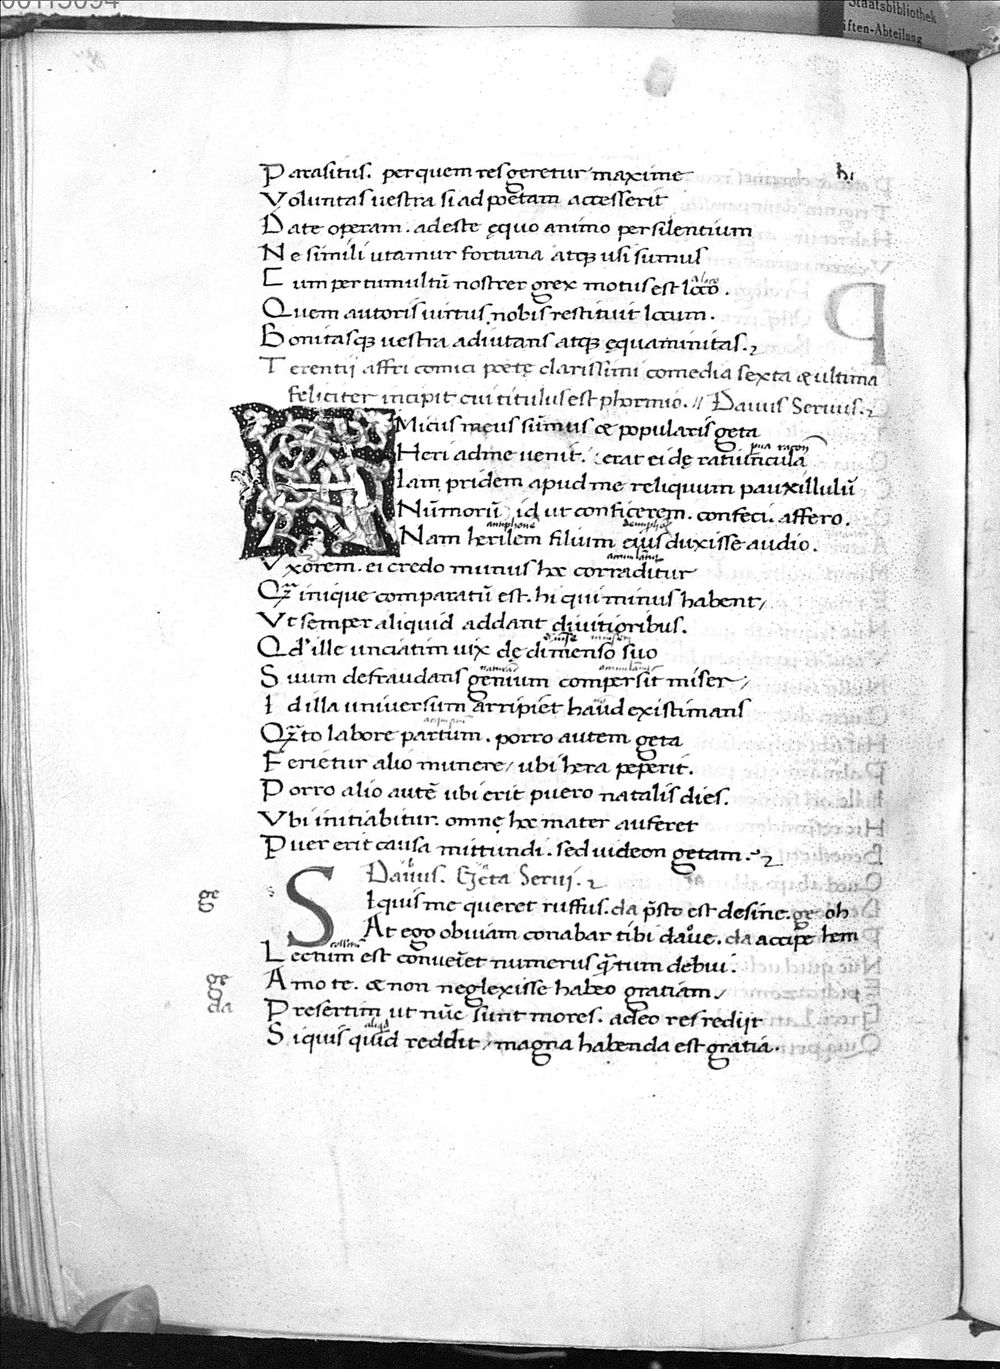 Parasitus. per quem res geretur maxime
Voluntas uestra si ad poetam accesserit
Date operam. adeste ęquo animo per silentium
Ne simili utamur fortuna atq; usi sumus
Cum per tumultū noster grex motus est loco.
Quem autoris uirtus nobis restituit locum.
Bonitasq; uestra adiutans atq; ęquanimitas.
Terentij affri comici poetę clarissimi comedia sexta & ultima
feliciter incipit cui titulus est phormio. // Dauus Seruus.
AMicus meus sūmus & popularis geta
Heri ad me uenit. erat ei dę ratiuncula
Iam pridem apud me reliquum pauxillulū
Nūmorū id ut conficerem. confeci. affero.
Nam herilem filium eius duxisse audio.
Vxorem. ei credo munus hoc corraditur
Qā inique comparatū est. hi qui minus habent/
Vt semper aliquid addant diuitioribus.
Qd' ille unciatim uix dę dimenso suo
Suum defraudans genium compersit miser/
Id illa uniuersum arripiet haud existimans
Qāto labore partum. porro autem geta
Ferietur alio munere/ ubi hera peperit.
Porro alio autē ubi erit puero natalis dies.
Vbi initiabitur. omnę hoc mater auferet
Puer erit causa mittundi. sed uideon getam.
Dauus. Geta Serui.
ge SIquis me queret ruffus. da p̄sto est desine. ge oh
At ego obuiam conabar tibi daue. da accipe hem
Lectum est conueniet numerus q̄tum debui.
ge Amo te. & non neglexisse habeo gratiam./
da Presertim ut nūc sunt mores. adeo res redijt
Siquis quid reddit/ magna habenda est gratia.
Staatsbibliothek
iften-Abteilung